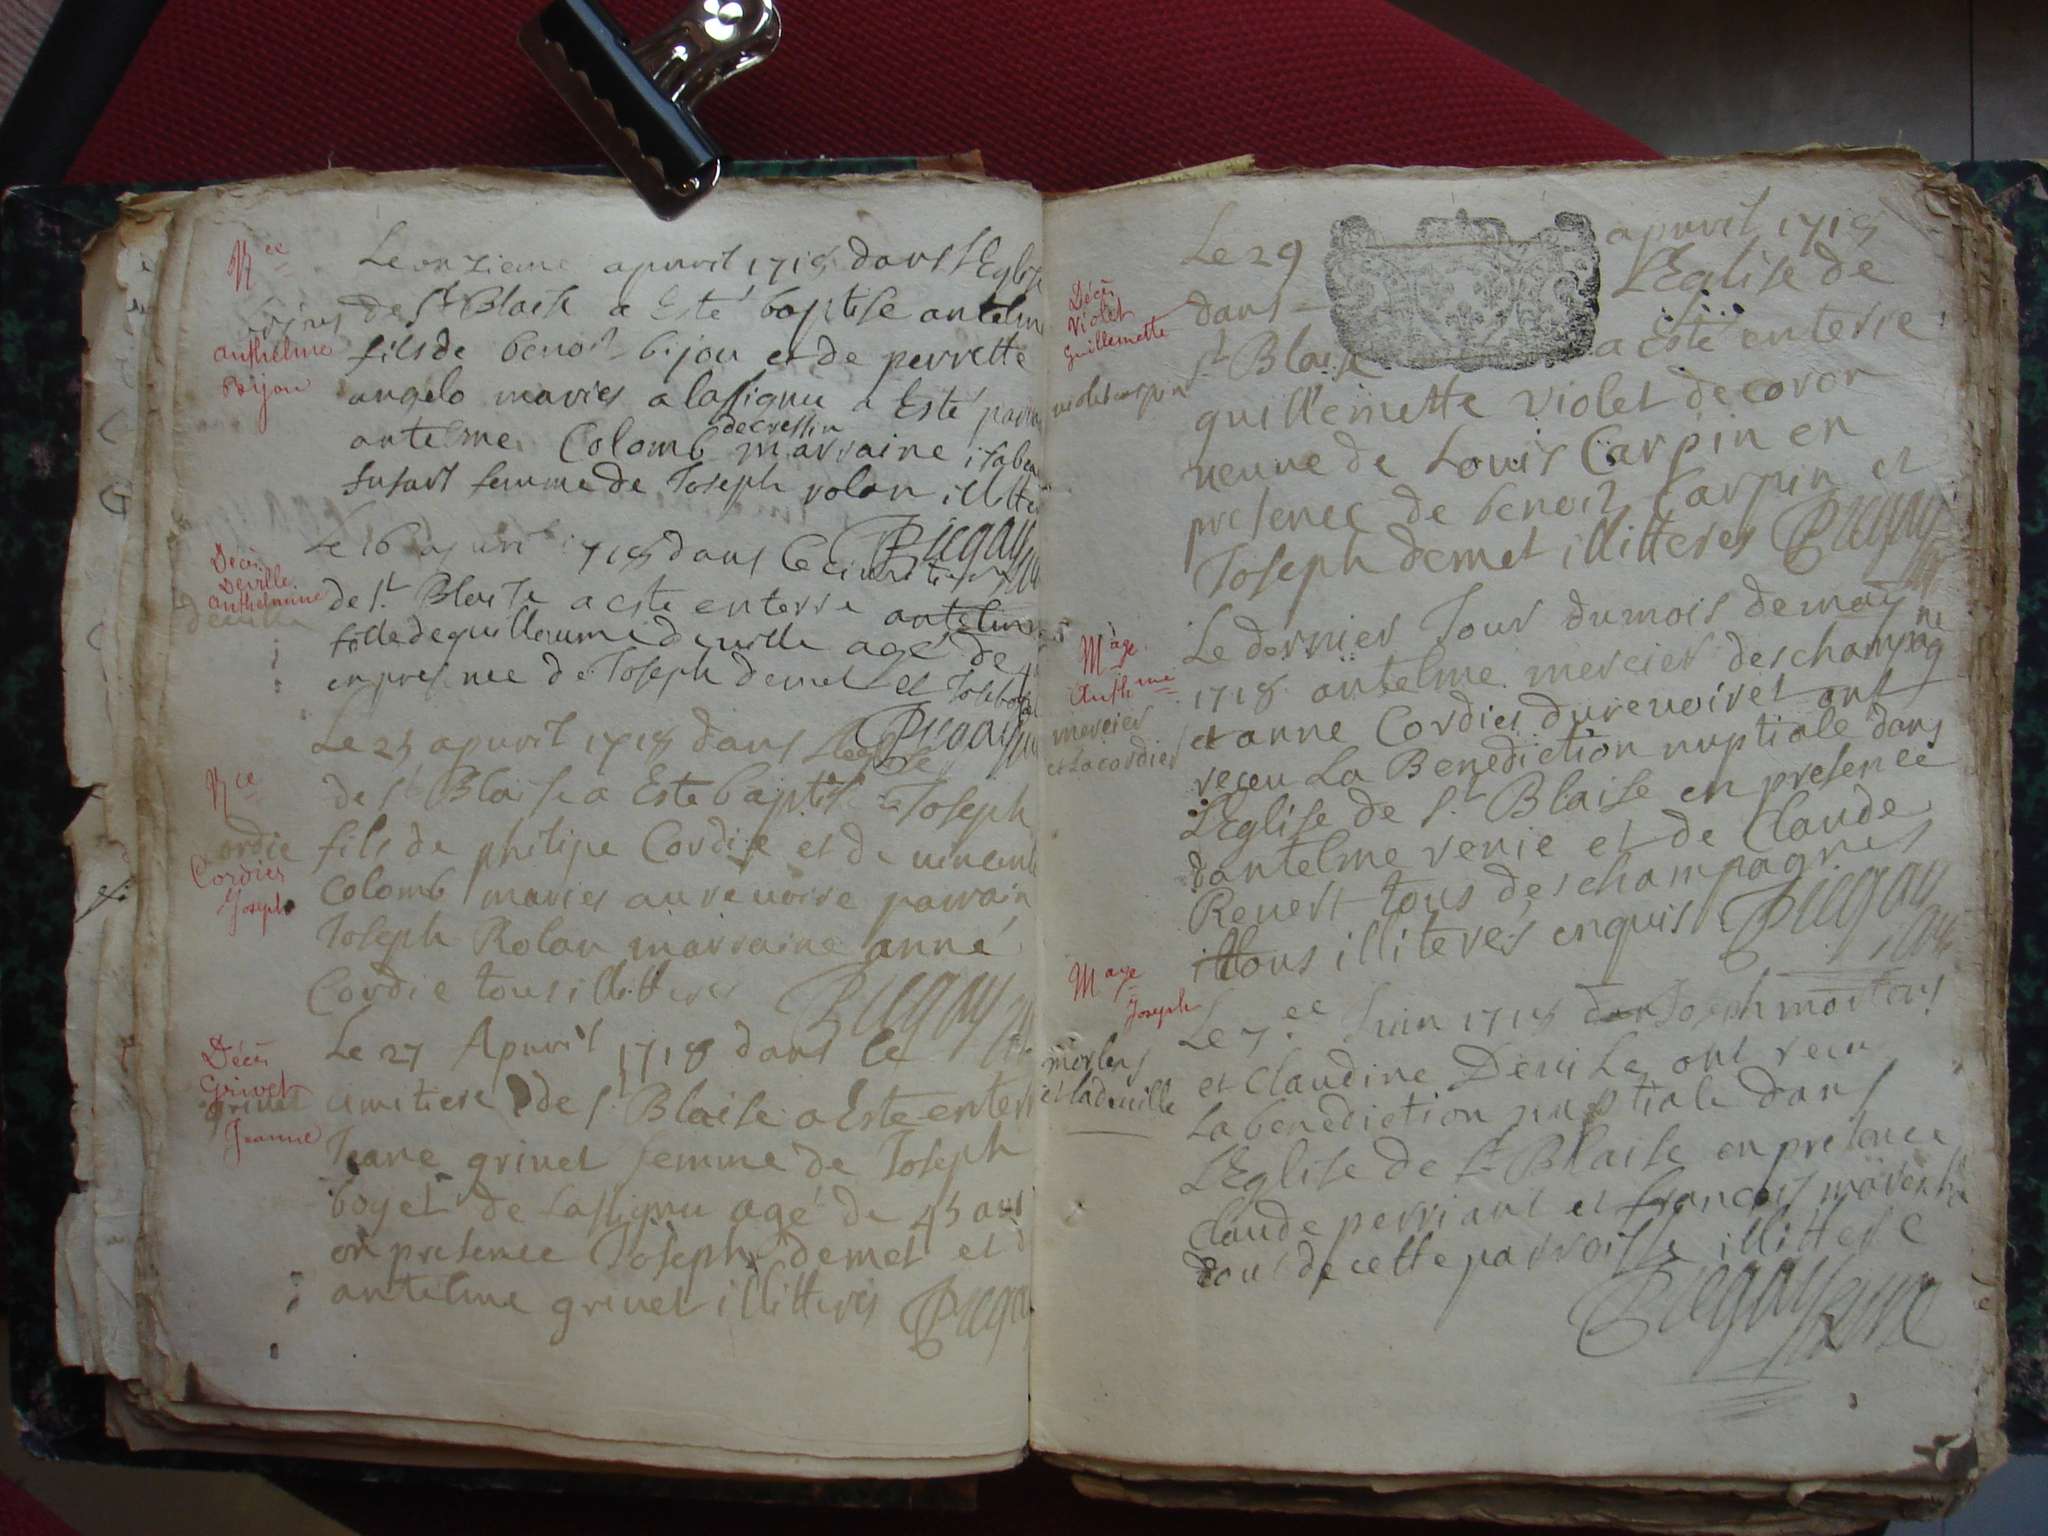 Nce
bijou
Anthelme
Bijou
Le onzieme apuvril 1718 dans L'Eglise
de St Blaise a Esté baptise antelme
fils de benoit bijou et de perrette
angelo maries a lassignu a Esté parrain
antelme Colomb de cressin marraine isabeau
femme de Joseph rolan illitteres
Bicgay
Décès
Deville
Anthelmine
deville
Le 16 apuvril 1718 dans le cimitiere
de St Blaise a este enterre antelmine
fille de guillaume deville agé de
en presence de Joseph demet et Joseph
Bicgay
Nce
Cordie
Cordier
Joseph
Le 25 apuvril 1718 dans L'eglise
de St Blaise a Este baptise Joseph
fils de philipe Cordie et de uincente
Colomb maries au reuoire parrain
Joseph Rolan marraine anne
Cordie tous illitteres
Bicgay
Décès
Grivet
grivet
Jeanne
Le 27 Apuvril 1718 dans le
cimitiere de St Blaise a Este enterre
Jeane griuet femme de Joseph
boget de lassignu agé de 45 ans
en presence Joseph demet et d
antelme griuet illitteres Bicgay
Décès
Violet
Guillemette
violet carpin
Le 29 apuvril 1718
dans L'Eglise de
St Blaise a Esté enterre
guillemette violet de coron
ueuue de Louis Carpin en
presence de benoit Carpin et
Joseph demet illitteres Bicgay
Mage
Anthme
mercier
et La cordier
Le dernier Jour du mois de may
1718 antelme mercier des champagne
et anne Cordier du reuoiret ont
receu La Benediction nuptiale dans
L'Eglise de St Blaise en presence
d'antelme venie et de Claude
Reuert tous des champagnes
tous illiteres enquis Bicgay
Mage
Joseph
mortens
et ladeuille
Le 7ee Juin 1718 Joseph martens
et Claudine Deuile ont receu
La benediction nuptiale dans
L'Eglise de St Blaise en presence
Claude perriant et francois
tous de cette parroisse illittere
Bicgay